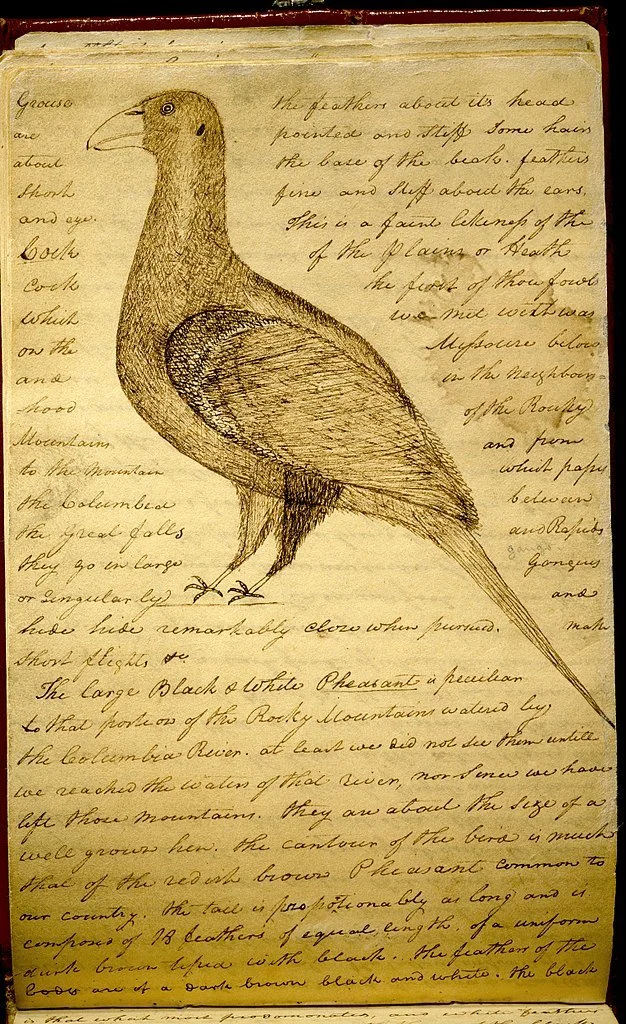 Grouse the feathers about its head
are pointed and stiff Some hairs
about the base of the beak. feathers
Short fine and stiff about the ears.
and eye. This is a faint likeness of the
Cock of the plains or Heath
cock the first of those fowls
which we met with was
on the Missourie below
and in the neighbour=
hood of the Rocky
Mountains and from
to the mountain which pass
the Columbea between
the Great falls and Rapids
they go in large Gangues gangs
or Singularly and
hide hide remarkably close when pursued. make
Short flights &c
The large Black & White Pheasant is peculiar
to that portion of the Rocky Mountains watered by
the Columbia River. at least we did not see them untill
we reached the waters of that river, nor Since we have
left those mountains. they are about the size of a
well grown hen. the contour of the bird is much
that of the redish brown Pheasant common to
our country. the tail is propotionably as long and is
composed of 18 feathers of equal length. of a uniform
dark brown tiped with black. the feathers of the
body are of a dark brown black and white. the black
is that which most predomonates, and white feathers